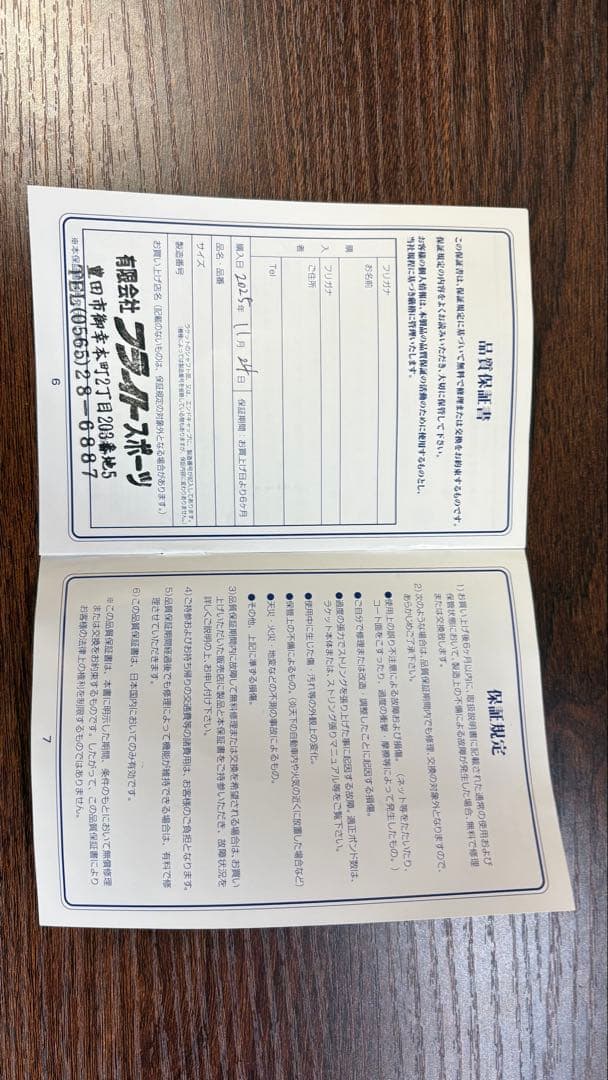 品質保証書
この保証書は、保証規定に基づいて無料で修理または交換をお約束するものです。
保証規定の内容をよくお読みいただき、大切に保管して下さい。
お客様の個人情報は、本製品の品質保証の活動のために使用するものとし、
当社規程に基づき厳格に管理いたします。
購入者
フリガナ
お名前
フリガナ
ご住所
Tel
購入日 2025年 11月 24日 保証期間:お買上げ日より6ヶ月
品名・品番
サイズ
製造番号
ラケットのシャフト部、又は、エンドキャップに、製造番号が記入してあります。
お買い上げ店名(記載のないものは、保証規定の対象外となる場合があります。)
有限会社 フライトスポーツ
豊田市御幸本町2丁目203番地5
TEL(0565)28-6887
6
保証規定
1)お買い上げ後6ヶ月以内に、取扱説明書に記載された通常の使用および
保管状態において、製造上の不備による故障が発生した場合、無料で修理
または交換致します。
2)次のような場合は、品質保証期間内でも修理、交換の対象外となりますので、
あらかじめご了承下さい。
●使用上の誤り不注意による故障および損傷。(ネット等をたたいたり、
コート面をこすったり、過度の衝撃・摩擦等によって発生したもの。)
●ご自分で修理または改造・調整したことに起因する損傷。
●過度の張力でストリングを張り上げた事に起因する故障。適正ポンド数は、
ラケット本体または、ストリング張りマニュアル等をご覧下さい。
●使用中に生じた傷・汚れ等の外観上の変化。
●保管上の不備によるもの。(炎天下の自動車内や火気の近くに放置した場合など)
●天災・火災・地変などの不測の事故によるもの。
●その他、上記に準ずる損傷。
3)品質保証期間内に故障して無料修理または交換を希望される場合は、お買い
上げいただいた販売店に製品と本保証書をご持参いただき、故障状況を
詳しくご説明の上、お申し付け下さい。
4)ご持参およびお持ち帰りの交通費等の諸費用は、お客様のご負担となります。
5)品質保証期間経過後でも修理によって機能が維持できる場合は、有料で修
理させていただきます。
6)この品質保証書は、日本国内においてのみ有効です。
※この品質保証書は、本書に明示した期間、条件のもとにおいて無償修理
または交換をお約束するものです。したがって、この品質保証書により
お客様の法律上の権利を制限するものではありません。
7